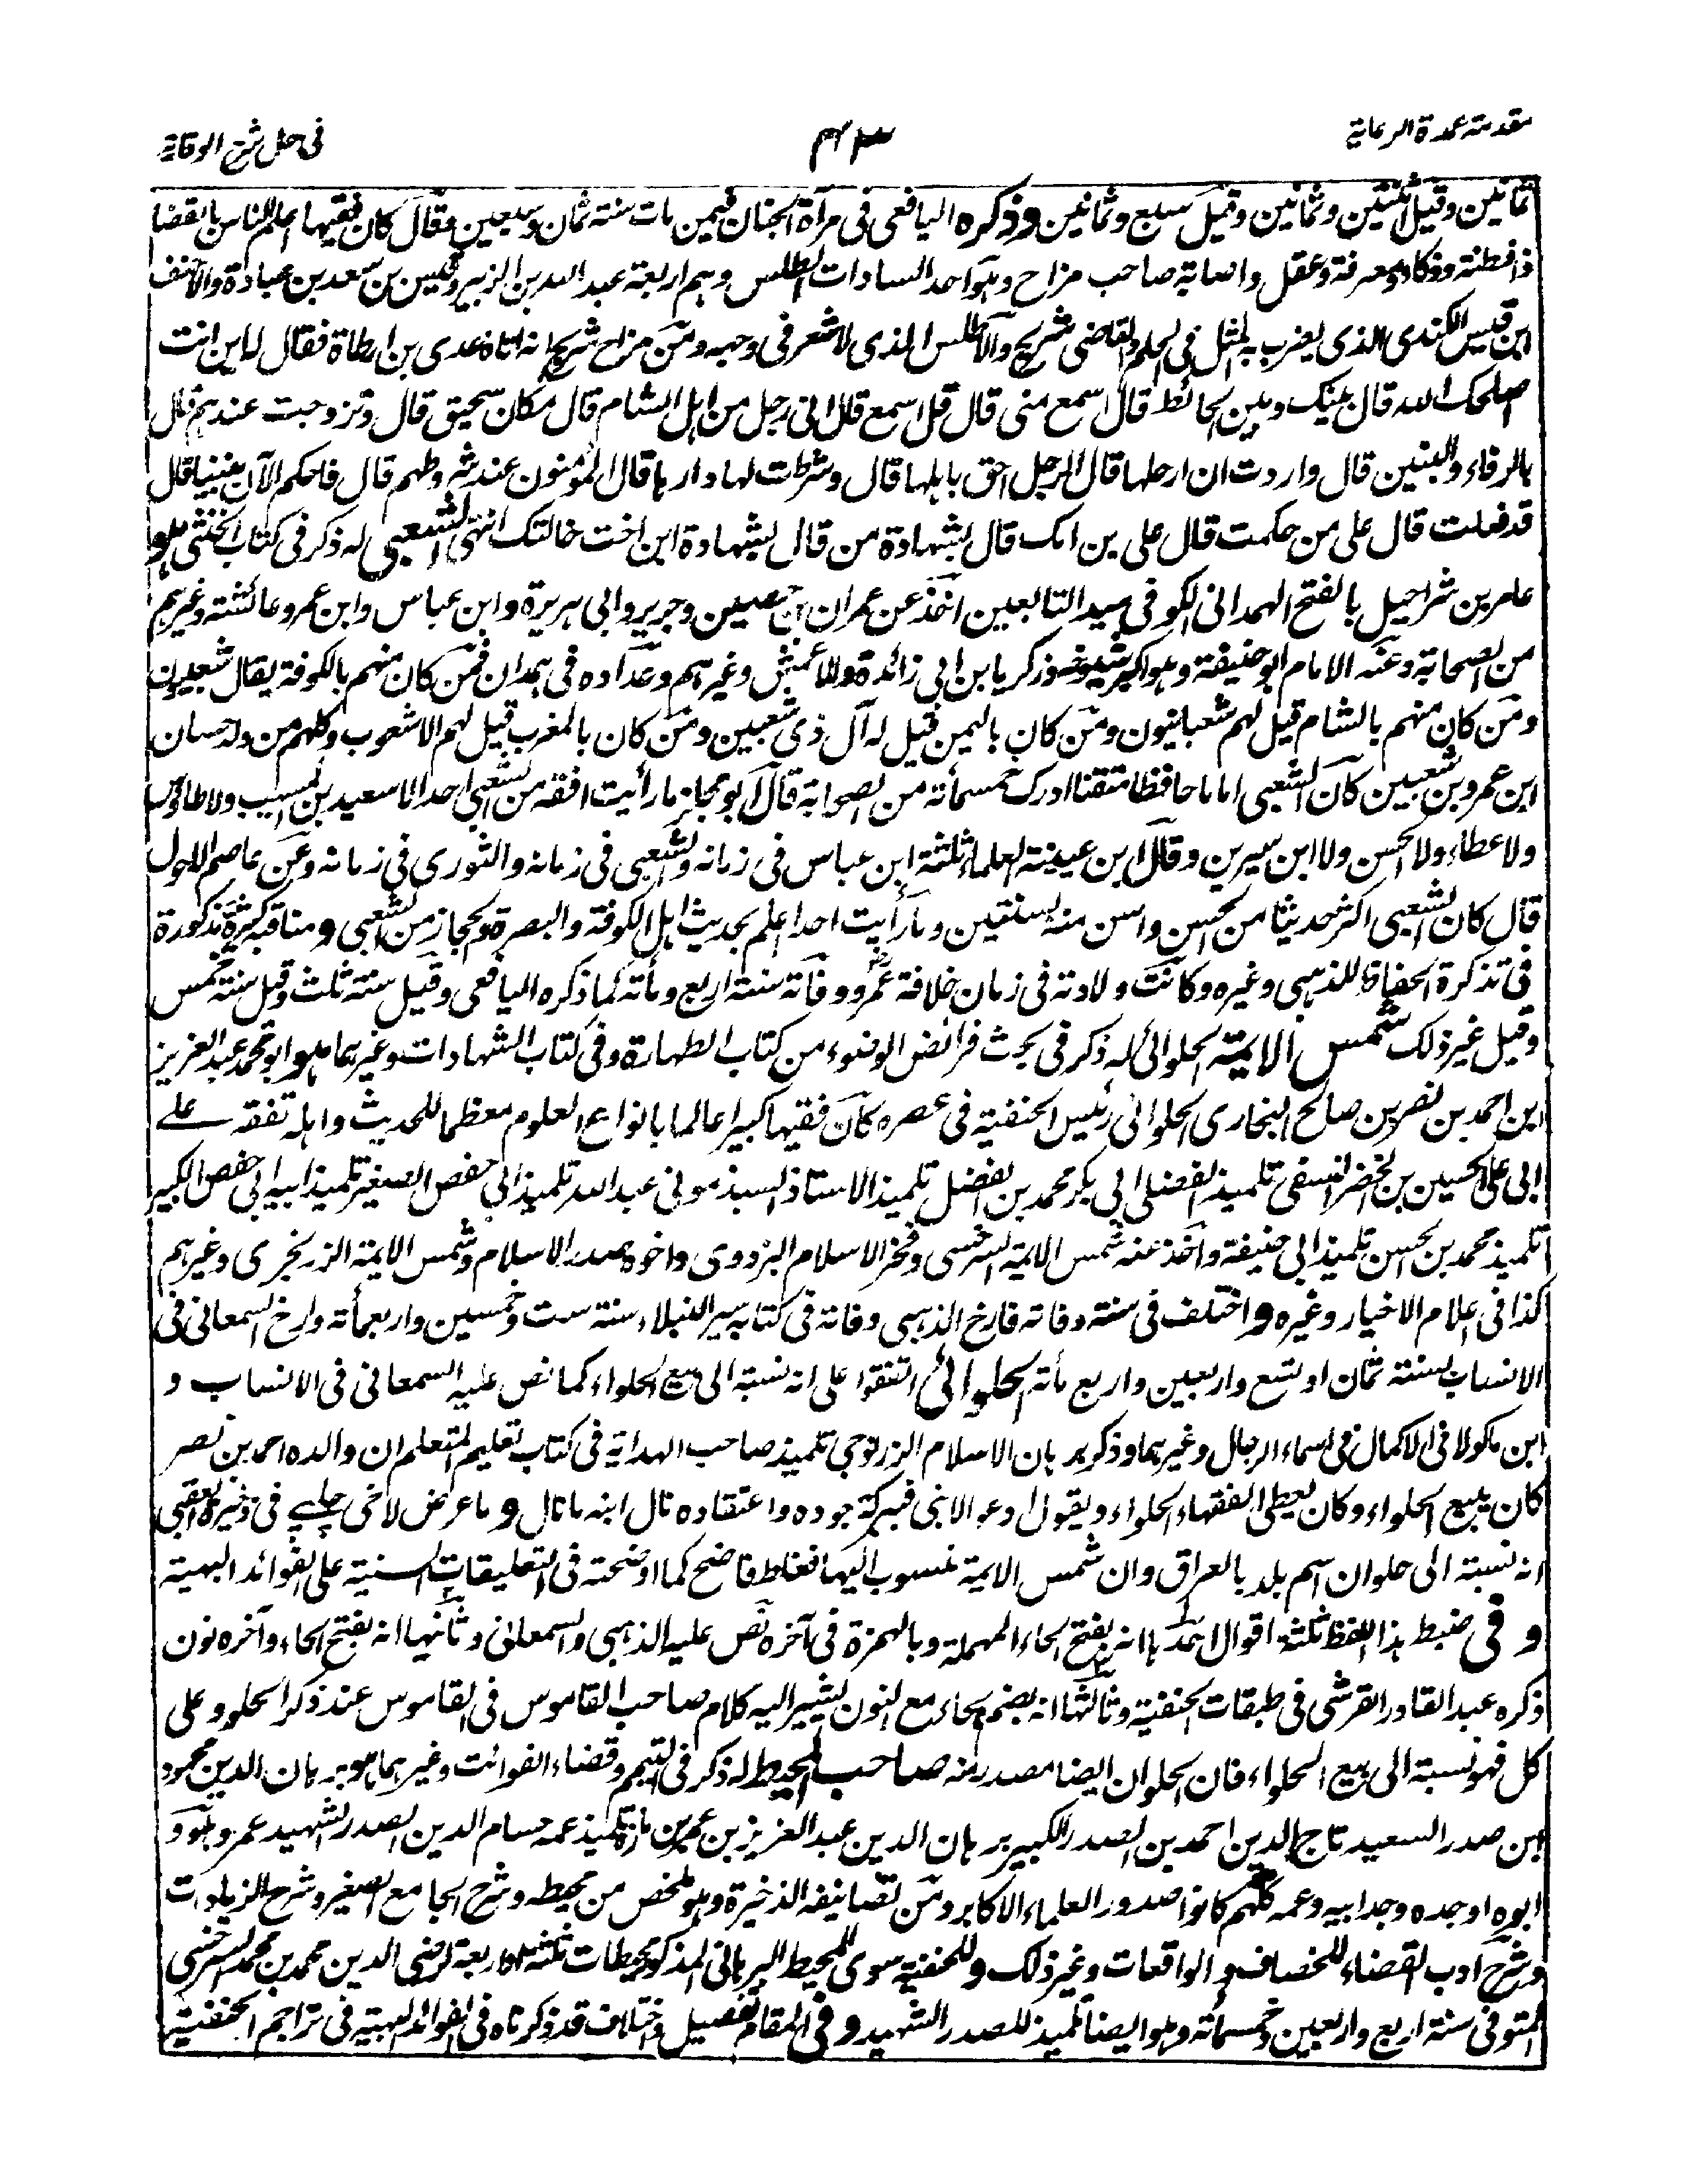 مقدمة عمدة الرعاية
٣٤
في حل شرح الوقاية
ثمانين وقيل اثنتين وثمانين وقيل سبع وثمانين وذكره اليافعي في مرآة الجنان فيمن مات سنة ثمان وسبعين وقال كان فقيها اعلم الناس بالقضا
ذا فطنة وذكاء ومعرفة وعقل واصابة صاحب مزاح وهو احد السادات الطلس وهم اربعة عبد الله بن الزبير وقيس بن سعد بن عبادة والاحنف
ابن قيس الكندي الذي يضرب به المثل في الحلم والقاضي شريح والاطلس الذي لا شعر في وجهه ومن مزاح شريح انه اتاه عدي بن ارطاة فقال له اين انت
اصلحك الله قال بينك وبين الحائط قال اسمع مني قال قل اسمع قال اني رجل من اهل الشام قال مكان سحيق قال وتزوجت عندهم قال
بالرفاء والبنين قال واردت ان ارحلها قال الرجل احق باهلها قال وشرطت لها دارها قال المؤمنون عند شروطهم قال فاحكم الآن بيننا قال
قد فعلت قال على من حكمت قال على بن امك قال بشهادة من قال بشهادة ابن اخت خالتك انتهى الشعبي له ذكر في كتاب الخنثى هو
عامر بن شراحيل بالفتح الهمداني الكوفي سيد التابعين اخذ عن عمران بن حصين وجرير وابي هريرة وابن عباس وابن عمر وعائشة وغيرهم
من الصحابة وعنه الامام ابو حنيفة وهو اكبر شيوخه وزكريا بن ابي زائدة والاعمش وغيرهم وعداده في همدان فمن كان منهم بالكوفة يقال شعبيون
ومن كان منهم بالشام قيل لهم شعبانيون ومن كان باليمن قيل له آل ذي شعبين ومن كان بالمغرب قيل لهم الاشعوب وكلهم من ولد حسان
ابن عمرو بن شعبين كان الشعبي اماما حافظا متقنا ادرك خمسمائة من الصحابة قال ابو مجلز ما رأيت افقه من الشعبي احدا لا سعيد بن المسيب ولا طاؤس
ولا عطاء ولا الحسن ولا ابن سيرين وقال ابن عيينة العلماء ثلثة ابن عباس في زمانه والشعبي في زمانه والثوري في زمانه وعن عاصم الاحول
قال كان الشعبي اكثر حديثا من الحسن واسن منه بسنتين وما رأيت احدا اعلم بحديث اهل الكوفة والبصرة والحجاز من الشعبي ومناقبه كثيرة مذكورة
في تذكرة الحفاظ للذهبي وغيره وكانت ولادته في زمان خلافة عمر ووفاته سنة اربع ومأته كما ذكره اليافعي وقيل سنة ثلث وقيل سنة خمس
وقيل غير ذلك شمس الايمة الحلوائي له ذكر في بحث فرائض الوضوء من كتاب الطهارة وفي كتاب الشهادات وغيرهما هو ابو محمد عبد العزيز
ابن احمد بن نصر بن صالح البخاري الحلوائي رئيس الحنفية في عصره كان فقيها كبيرا عالما بانواع العلوم معظما للحديث واهله تفقه على
ابي علي الحسين بن الخضر النسفي تلميذ الفضلي ابي بكر محمد بن الفضل تلميذ الاستاذ السبذموني عبد الله تلميذ ابي حفص الصغير تلميذ ابيه ابي حفص الكبير
تلميذ محمد بن الحسن تلميذ ابي حنيفة واخذ عنه شمس الايمة السرخسي وفخر الاسلام البزدوي واخوه صدر الاسلام وشمس الايمة الزرنجري وغيرهم
كذا في اعلام الاخيار وغيره واختلف في سنة وفاته فارخ الذهبي وفاته في كتابه سير النبلاء سنة ست وخمسين واربعمأته وارخ السمعاني في
الانساب بسنة ثمان او تسع واربعين واربع مأته الحلوائي اتفقوا على انه نسبة الى بيع الحلواء كما نص عليه السمعاني في الانساب و
ابن ماكولا في الاكمال في اسماء الرجال وغيرهما وذكر برهان الاسلام الزرنوجي تلميذ صاحب الهداية في كتاب تعليم المتعلم ان والده احمد بن نصر
كان يبيع الحلواء وكان يعطي الفقهاء الحلواء ويقول ادعوا لابني فببركة جوده واعتقاده نال ابنه ما نال وما عرض لاخى چلپے في ذخيرة العقبى
انه نسبة الى حلوان اسم بلد بالعراق وان شمس الايمة منسوب اليها فغلط فاضح كما اوضحته في التعليقات السنية على الفوائد البهية
وفي ضبط هذا اللفظ ثلثة اقوال احدها انه بفتح الحاء المهملة وبالهمزة في آخره نص عليه الذهبي والسمعاني وثانيها انه بفتح الحاء وآخره نون
ذكره عبد القادر القرشي في طبقات الحنفية وثالثها انه بضم الحاء مع النون يشير اليه كلام صاحب القاموس في القاموس عند ذكر الحلو وعلى
كل فهو نسبة الى بيع الحلواء فان الحلوان ايضا مصدر منه صاحب المحيط له ذكر في التيمم وقضاء الفوائت وغيرهما هو برهان الدين محمود
ابن صدر السعيد تاج الدين احمد بن الصدر الكبير برهان الدين عبد العزيز بن عمر بن مازه تلميذ عمه حسام الدين الصدر الشهيد عمر وهو و
ابوه او جده وجد ابيه وعمه كلهم كانوا صدور العلماء الاكابر ومن تصانيفه الذخيرة وهو ملخص من محيطه وشرح الجامع الصغير وشرح الزيادات
وشرح ادب القضاء للخصاف والواقعات وغير ذلك وللحنفية سوى المحيط البرهاني المذكور محيطات ثلثة او اربعة لرضي الدين محمد بن محمد السرخسي
المتوفى سنة اربع واربعين وخمسمأته وهو ايضا تلميذ للصدر الشهيد وفي المقام تفصيل واختلاف قد ذكرناه في الفوائد البهية في تراجم الحنفية